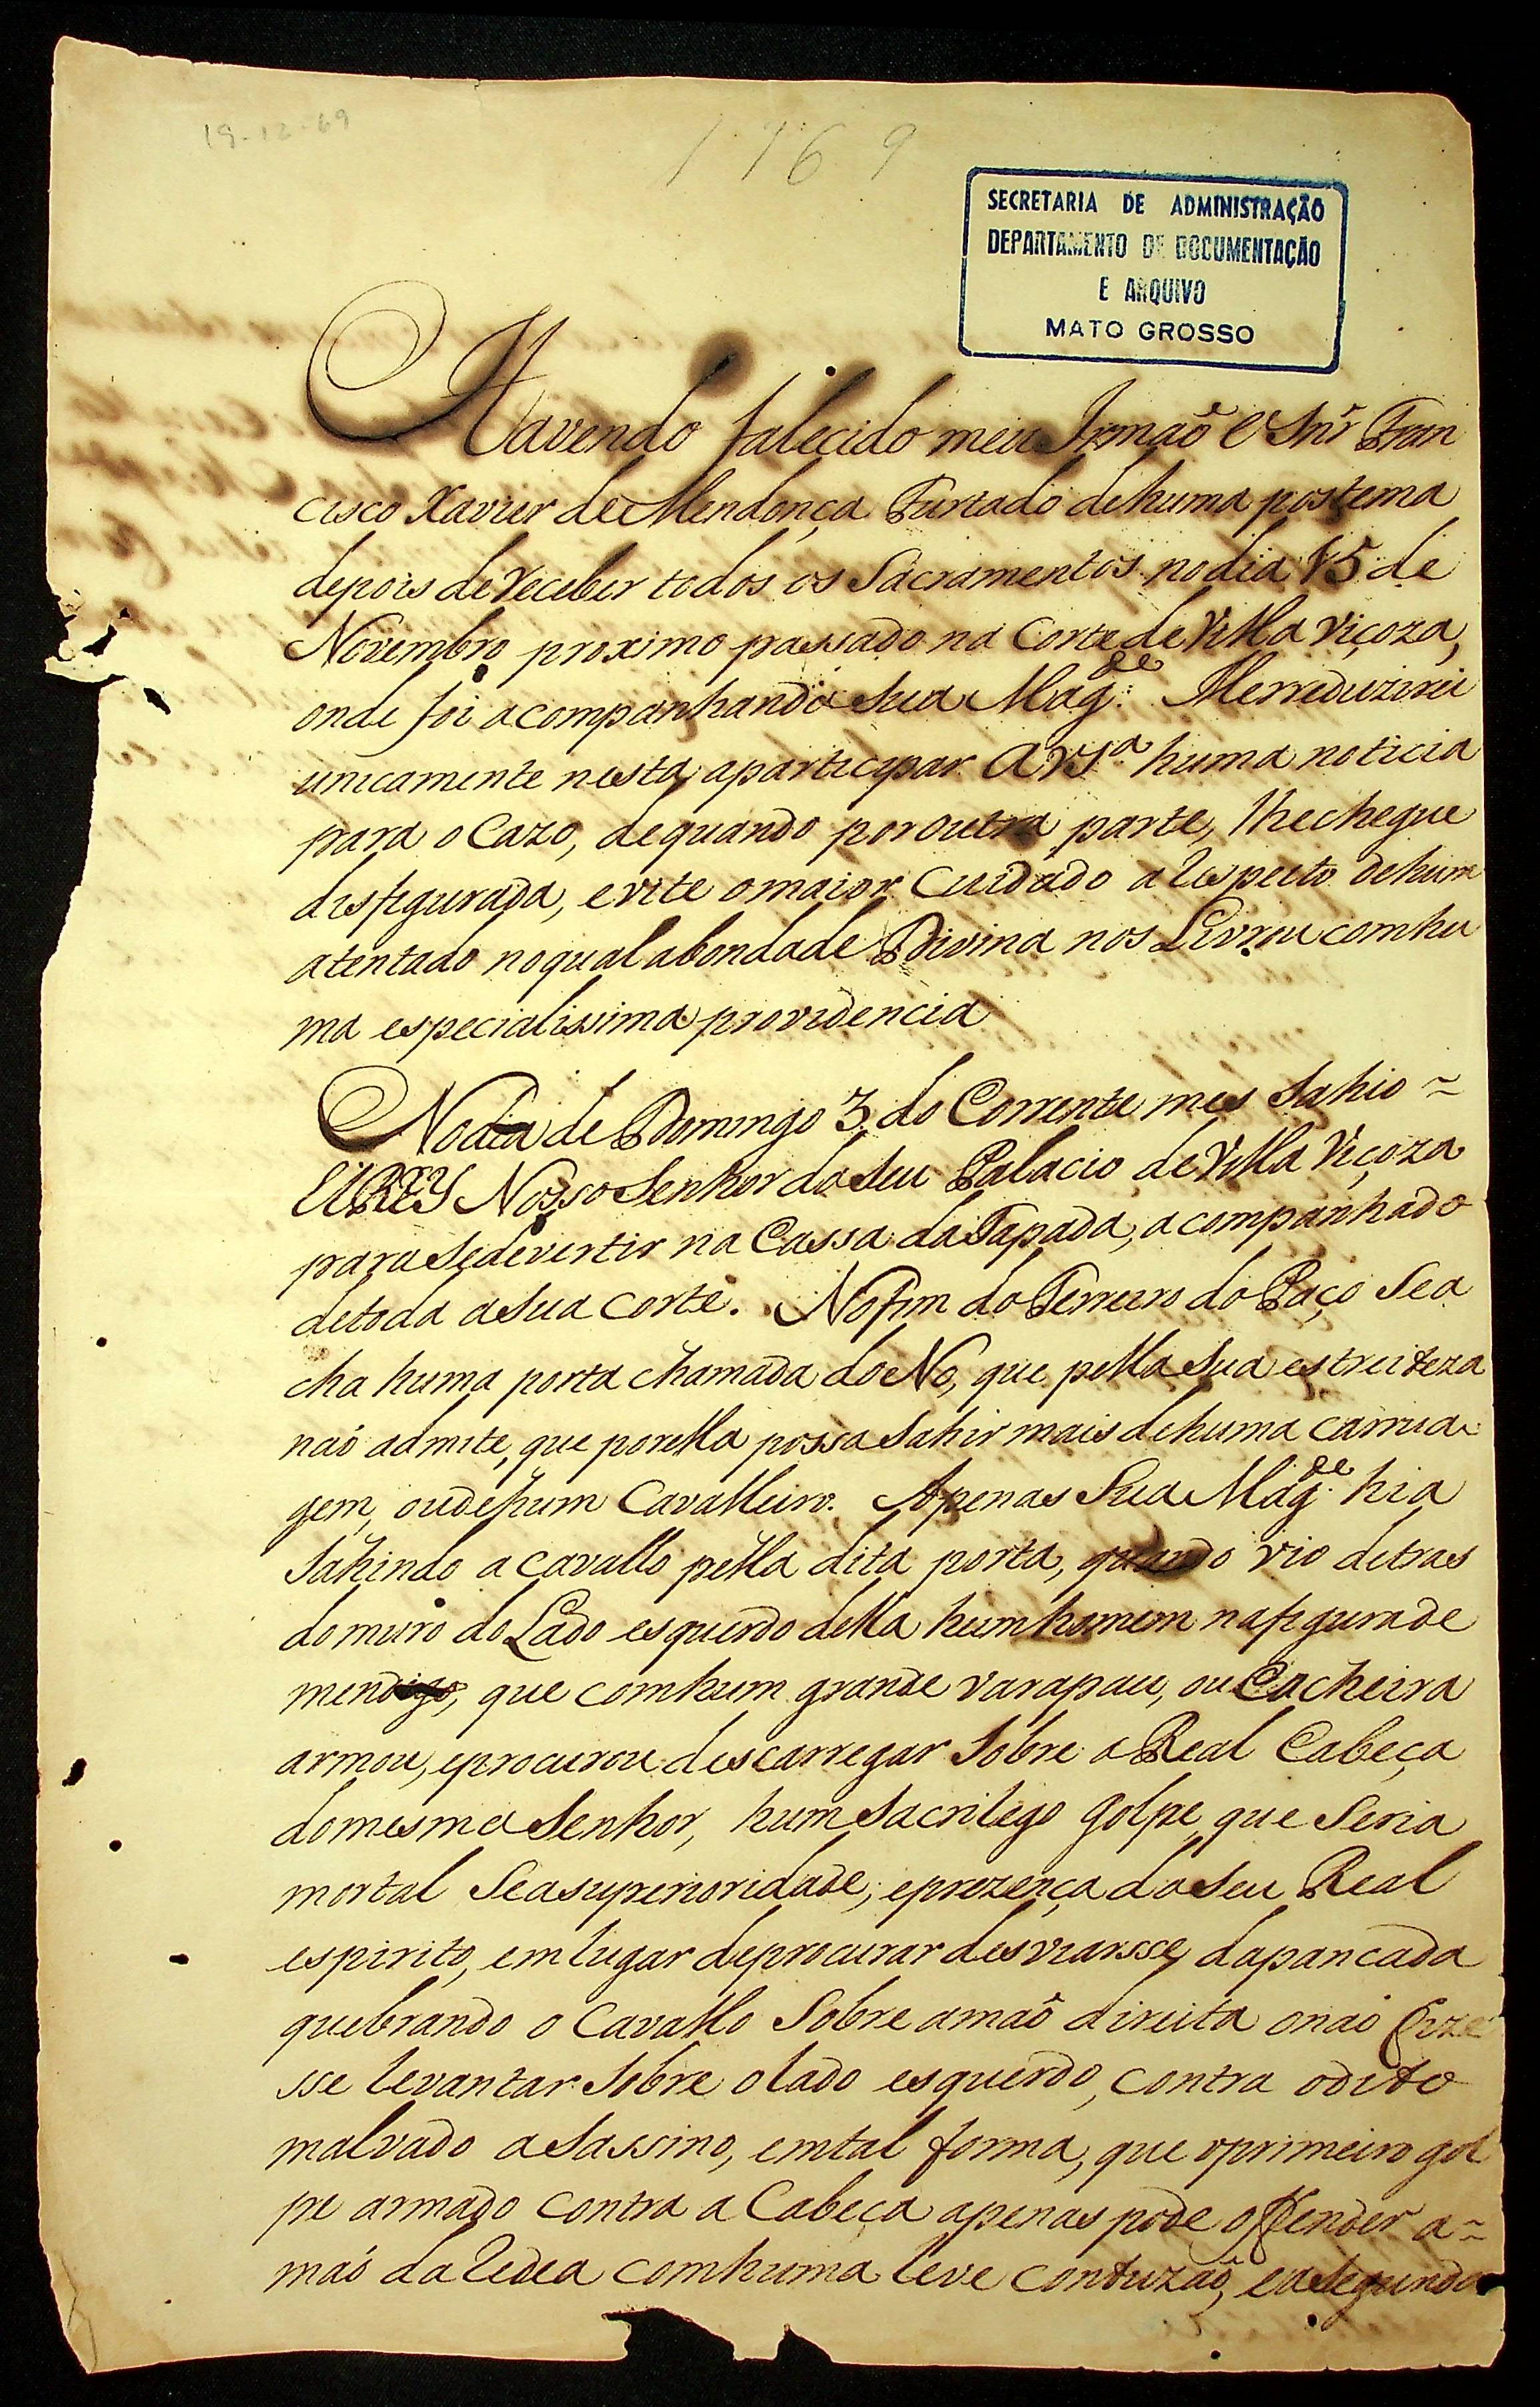 19-12-69
1769
SECRETARIA DE ADMINISTRAÇÃO
DEPARTAMENTO DE DOCUMENTAÇÃO
E ARQUIVO
MATO GROSSO
Havendo falecido meu Irmaõ e Snr̃ Fran
cisco Xavier de Mendonça Furtado dehuma postema
depois de receber todos os Sacramentos no dia 15 de
Novembro proximo passado na Corte de Villa Viçoza,
onde foi acompanhando Sua Mag.de Merreduzirei
unicamente nesta, aparticipar a VSª huma noticia
para o Cazo, dequando por outra parte, lhe chegue
disfigurada, evite o maior Cuidado a respeito dehum
atentado noqual abondade Divina nos Livrou comhu
ma especialissima providencia
No dia de Domingo 3 do Corrente mes Sahio ~
ElREY Nosso Senhor do Seu Palacio de Villa Viçoza
para Sedevertir na Cassa da Tapada, acompanhado
detoda aSua Corte. No fim do Terreiro do Paço Sea
cha huma porta chamada do No, que pella Sua estreiteza
naõ admite, que porella possa Sahir mais dehuma carrua
gem, oudehum Cavalleiro. Apenas Sua Mag.de hia
Sahindo a cavallo pella dita porta, quando vio detras
domuro do Lado esquerdo della hum homem nafigurade
mendigo, que comhum grande varapau, ou Cacheira
armou, eprocurou descarregar Sobre a Real Cabeça
domesmo Senhor, hum Sacrilego golpe, que Seria
mortal Seasuperioridade, eprezença do Seu Real
espirito, emlugar deprocurar desviarsse dapancada
quebrando o Cavallo Sobre amaõ direita onaõ fize
sse levantar Sobre olado esquerdo, contra odito
malvado aSassino, emtal forma, que oprimeiro gol
pe armado contra a Cabeça apenas pode offender a~
maõ da redea comhuma leve contuzaõ, eoSegundo